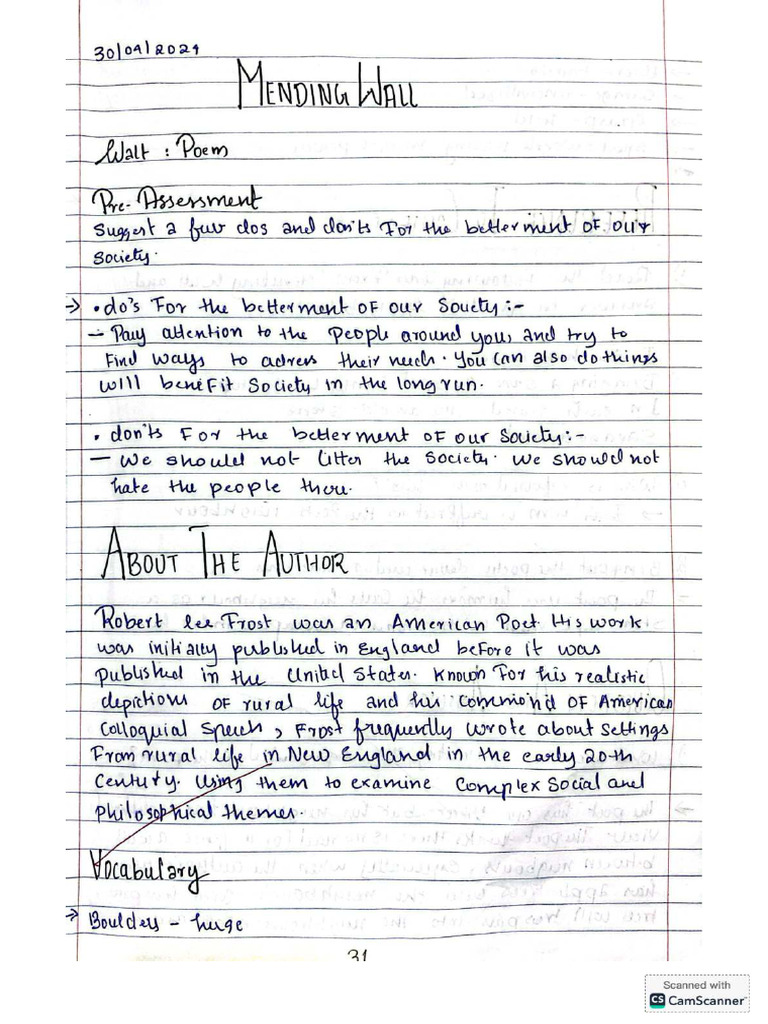 30/04/2024
MENDING WALL
Walt : Poem
Pre-Assessment
Suggest a few dos and don'ts For the betterment of our
society.
⇒ • do's For the betterment OF our Society :-
- Pay attention to the People around you, and try to
Find ways to adress their needs. You can also do things
will beneFit Society in the long run.
• don'ts For the betterment OF our Society:-
- We should not litter the Society. We should not
hate the people there.
ABOUT THE AUTHOR
Robert lee Frost was an American Poet. His work
was initially published in England beFore it was
published in the United States. Known For his realistic
depictions OF rural life and his command OF American
Colloquial Speech, Frost frequently wrote about Settings
From rural life in New England in the early 20th
Century. Using them to examine Complex Social and
Philosophical themes.
Vocabulary
⇒ Boulders - huge
31
Scanned with
CS CamScanner